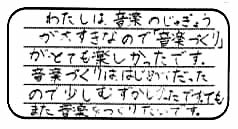 わたしは、音楽のじゅぎょう
がだすきなので「音楽づくり」
がとても楽しかったです。
音楽づくりははじめてだった
ので少しむずかしかったですが、でも
また音楽をつくりたいです。